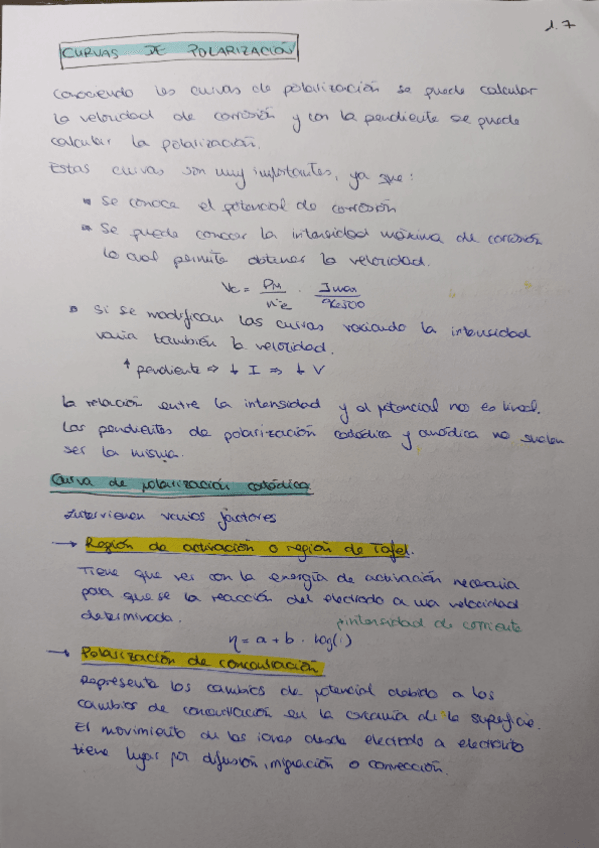 1.7
CURVAS DE POLARIZACIÓN
Conociendo las curvas de polarización se puede calcular
la velocidad de corrosión y con la pendiente se puede
calcular la polarización.
Estas curvas son muy importantes, ya que:
• Se conoce el potencial de corrosión
• Se puede conocer la intensidad máxima de corrosión
lo cual permite obtener la velocidad.
Vc = PM/nºe · Imax/96500
• Si se modifican las curvas variando la intensidad
varia también la velocidad.
↑ pendiente ⇒ ↓ I ⇒ ↓ V
La relación entre la intensidad y el potencial no es lineal.
Las pendientes de polarización catódica y anódica no suelen
ser la misma.
Curva de polarización catódica
Intervienen varios factores
→ Región de activación o región de Tafel.
Tiene que ver con la energía de activación necesaria
para que se la reacción del electrodo a una velocidad
determinada.
intensidad de corriente
η = a + b · log(i)
→ Polarización de concentración
Representa los cambios de potencial debido a los
cambios de concentración en la cercanía de la superficie.
El movimiento de los iones desde electrodo a electrolito
tiene lugar por difusión, migración o convección.